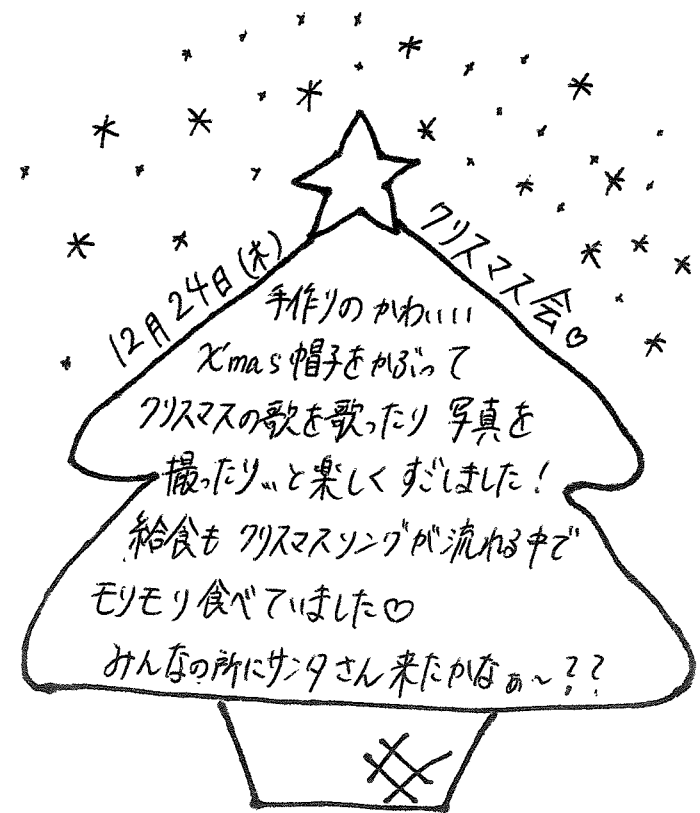 12月24日(木)
クリスマス会♡
手作りの かわいい
X'mas帽子をかぶって
クリスマスの歌を歌ったり 写真を
撮ったり…と楽しく すごしました！
給食も クリスマスソングが流れる中で
モリモリ食べていました♡
みんなの所にサンタさん来たかなぁ～??